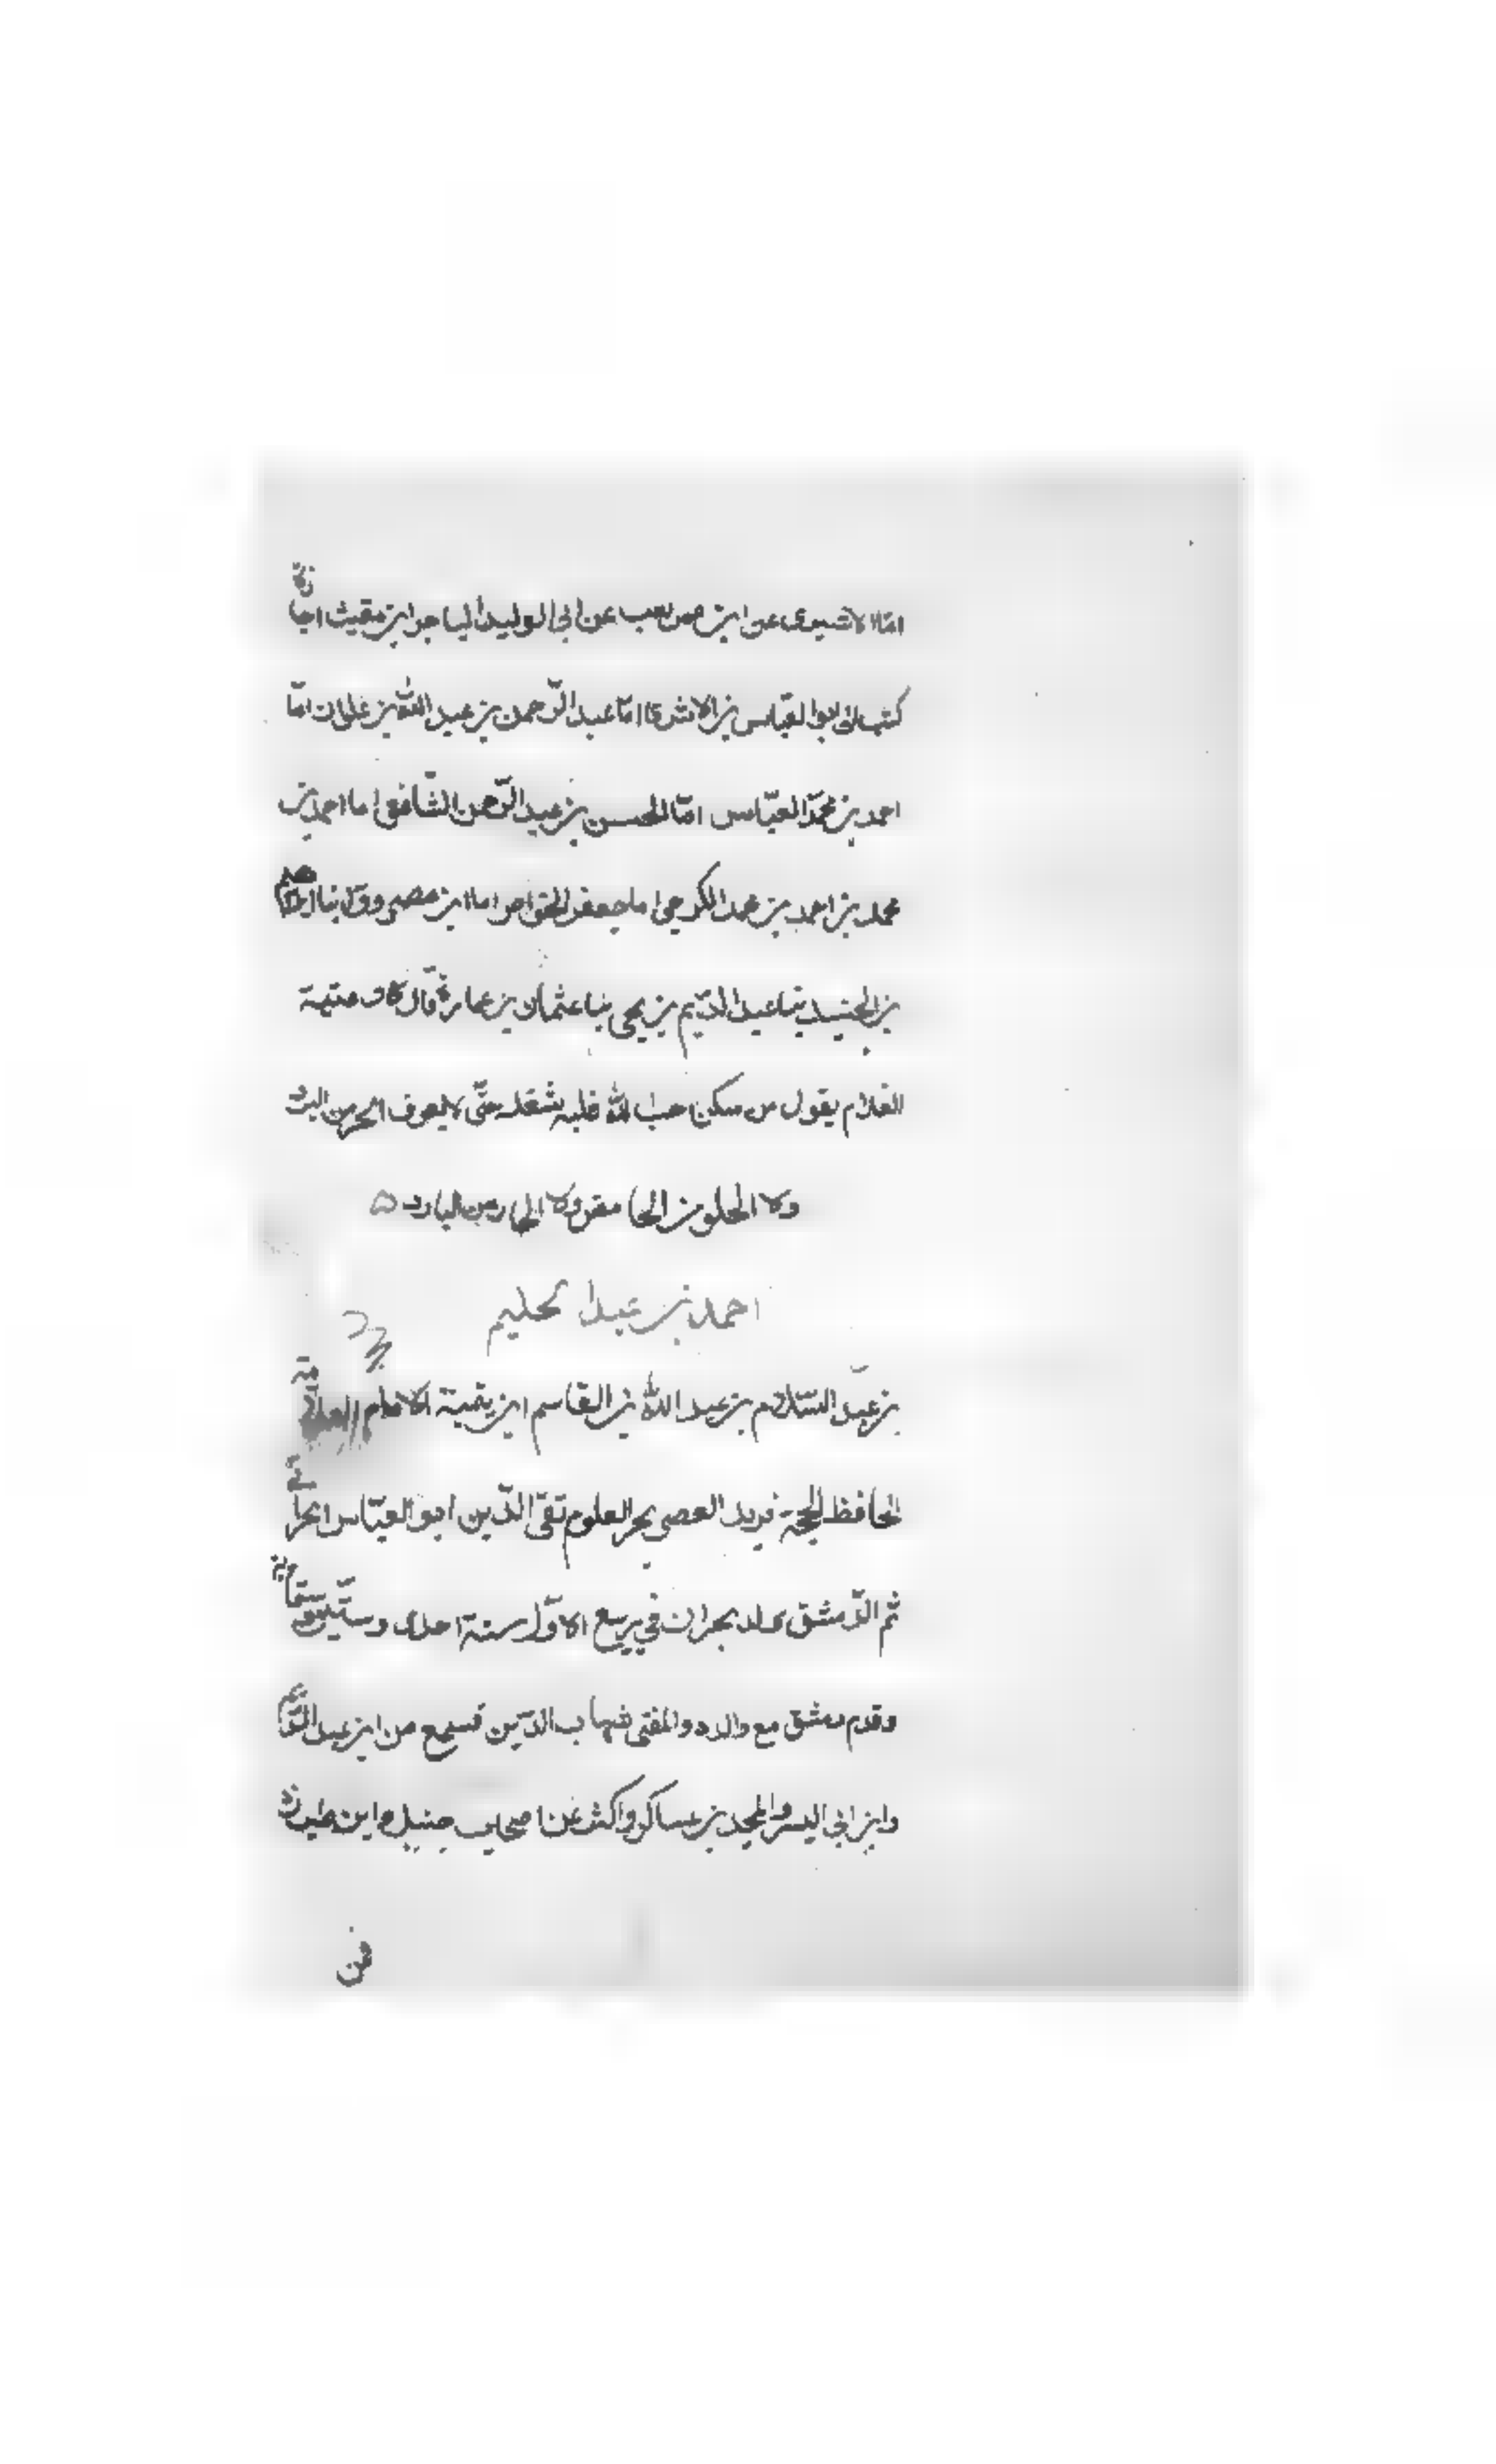 كتب الى ابو العباس بن الاشرى انا عبد الرّحمن بن عبد الله بن علوان انا
احمد بن محمّد العبّاس انا الحسن بن عبد الرّحمن الشّافعى انا احمد بن
محمد بن احمد بن محمد الكرجى انا جعفر الخواص انا ابن مصر ووق ثنا ابراهيم
بن الجنيد ثنا عبد الرّحيم بن يحيى ثنا عثمان بن عمارة قال كان عتبة
الغلام يقول من سكن حب الله قلبه شغله حتّى لا يعرف الحر من البرد
ولا الحلو من الحامض ولا الحار من البارد ۵
احمد بن عبد الحليم
بن عبد السّلام بن عبد الله بن القاسم ابن تيمية الامام العلامة
الحافظ الحجة فريد العصر بحر العلوم تقى الدّين ابو العبّاس الحرانى
ثم الدّمشقى ولد بحران فى ربيع الاوّل سنة احدى وستّين وستمائة
وقدم دمشق مع والده المفتى شهاب الدّين فسمع من ابن عبد الدّائم
وابن ابى اليسر والمجد بن عساكر واكثر عن اصحاب حنبل وابن طبرزد
فمن